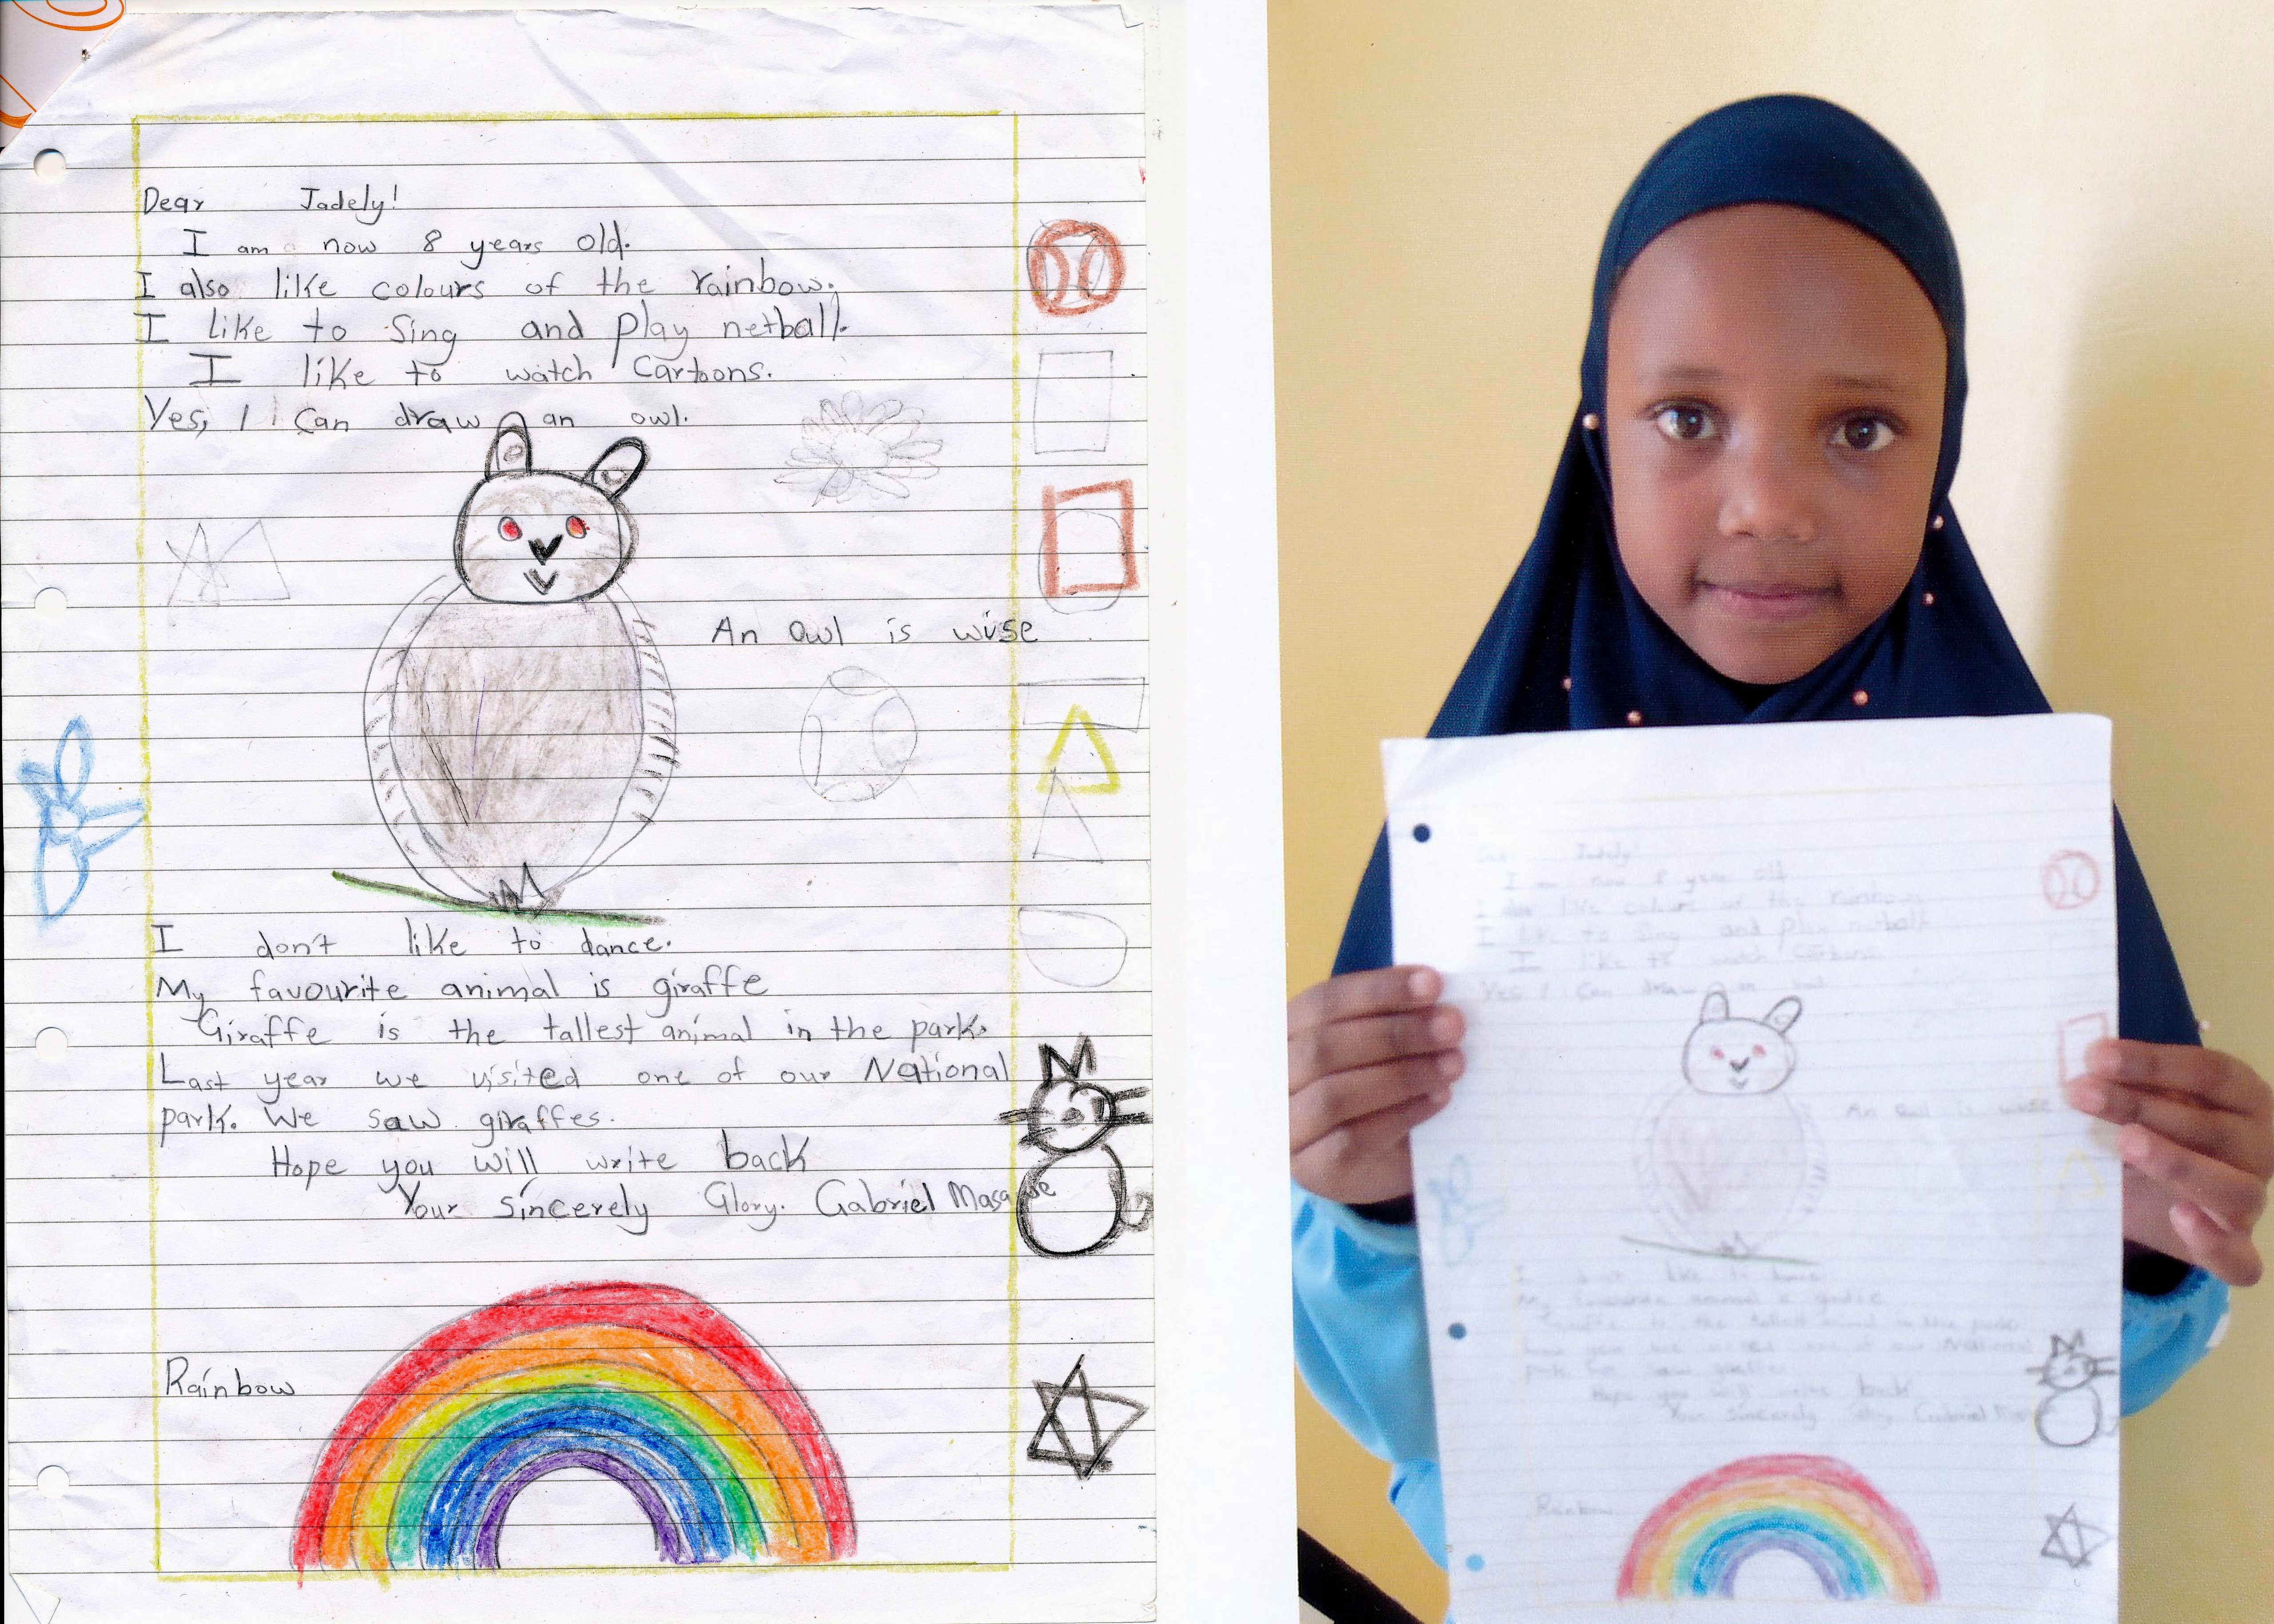 Dear Jadely!
I am now 8 years old.
I also like colours of the rainbow.
I like to Sing and play netball.
I like to watch Cartoons.
Yes, I can draw an owl.
An owl is wise
I don't like to dance.
My favourite animal is giraffe
Giraffe is the tallest animal in the park.
Last year we visited one of our National
park. We saw giraffes.
Hope you will write back
Your sincerely Glory. Gabriel
Rainbow